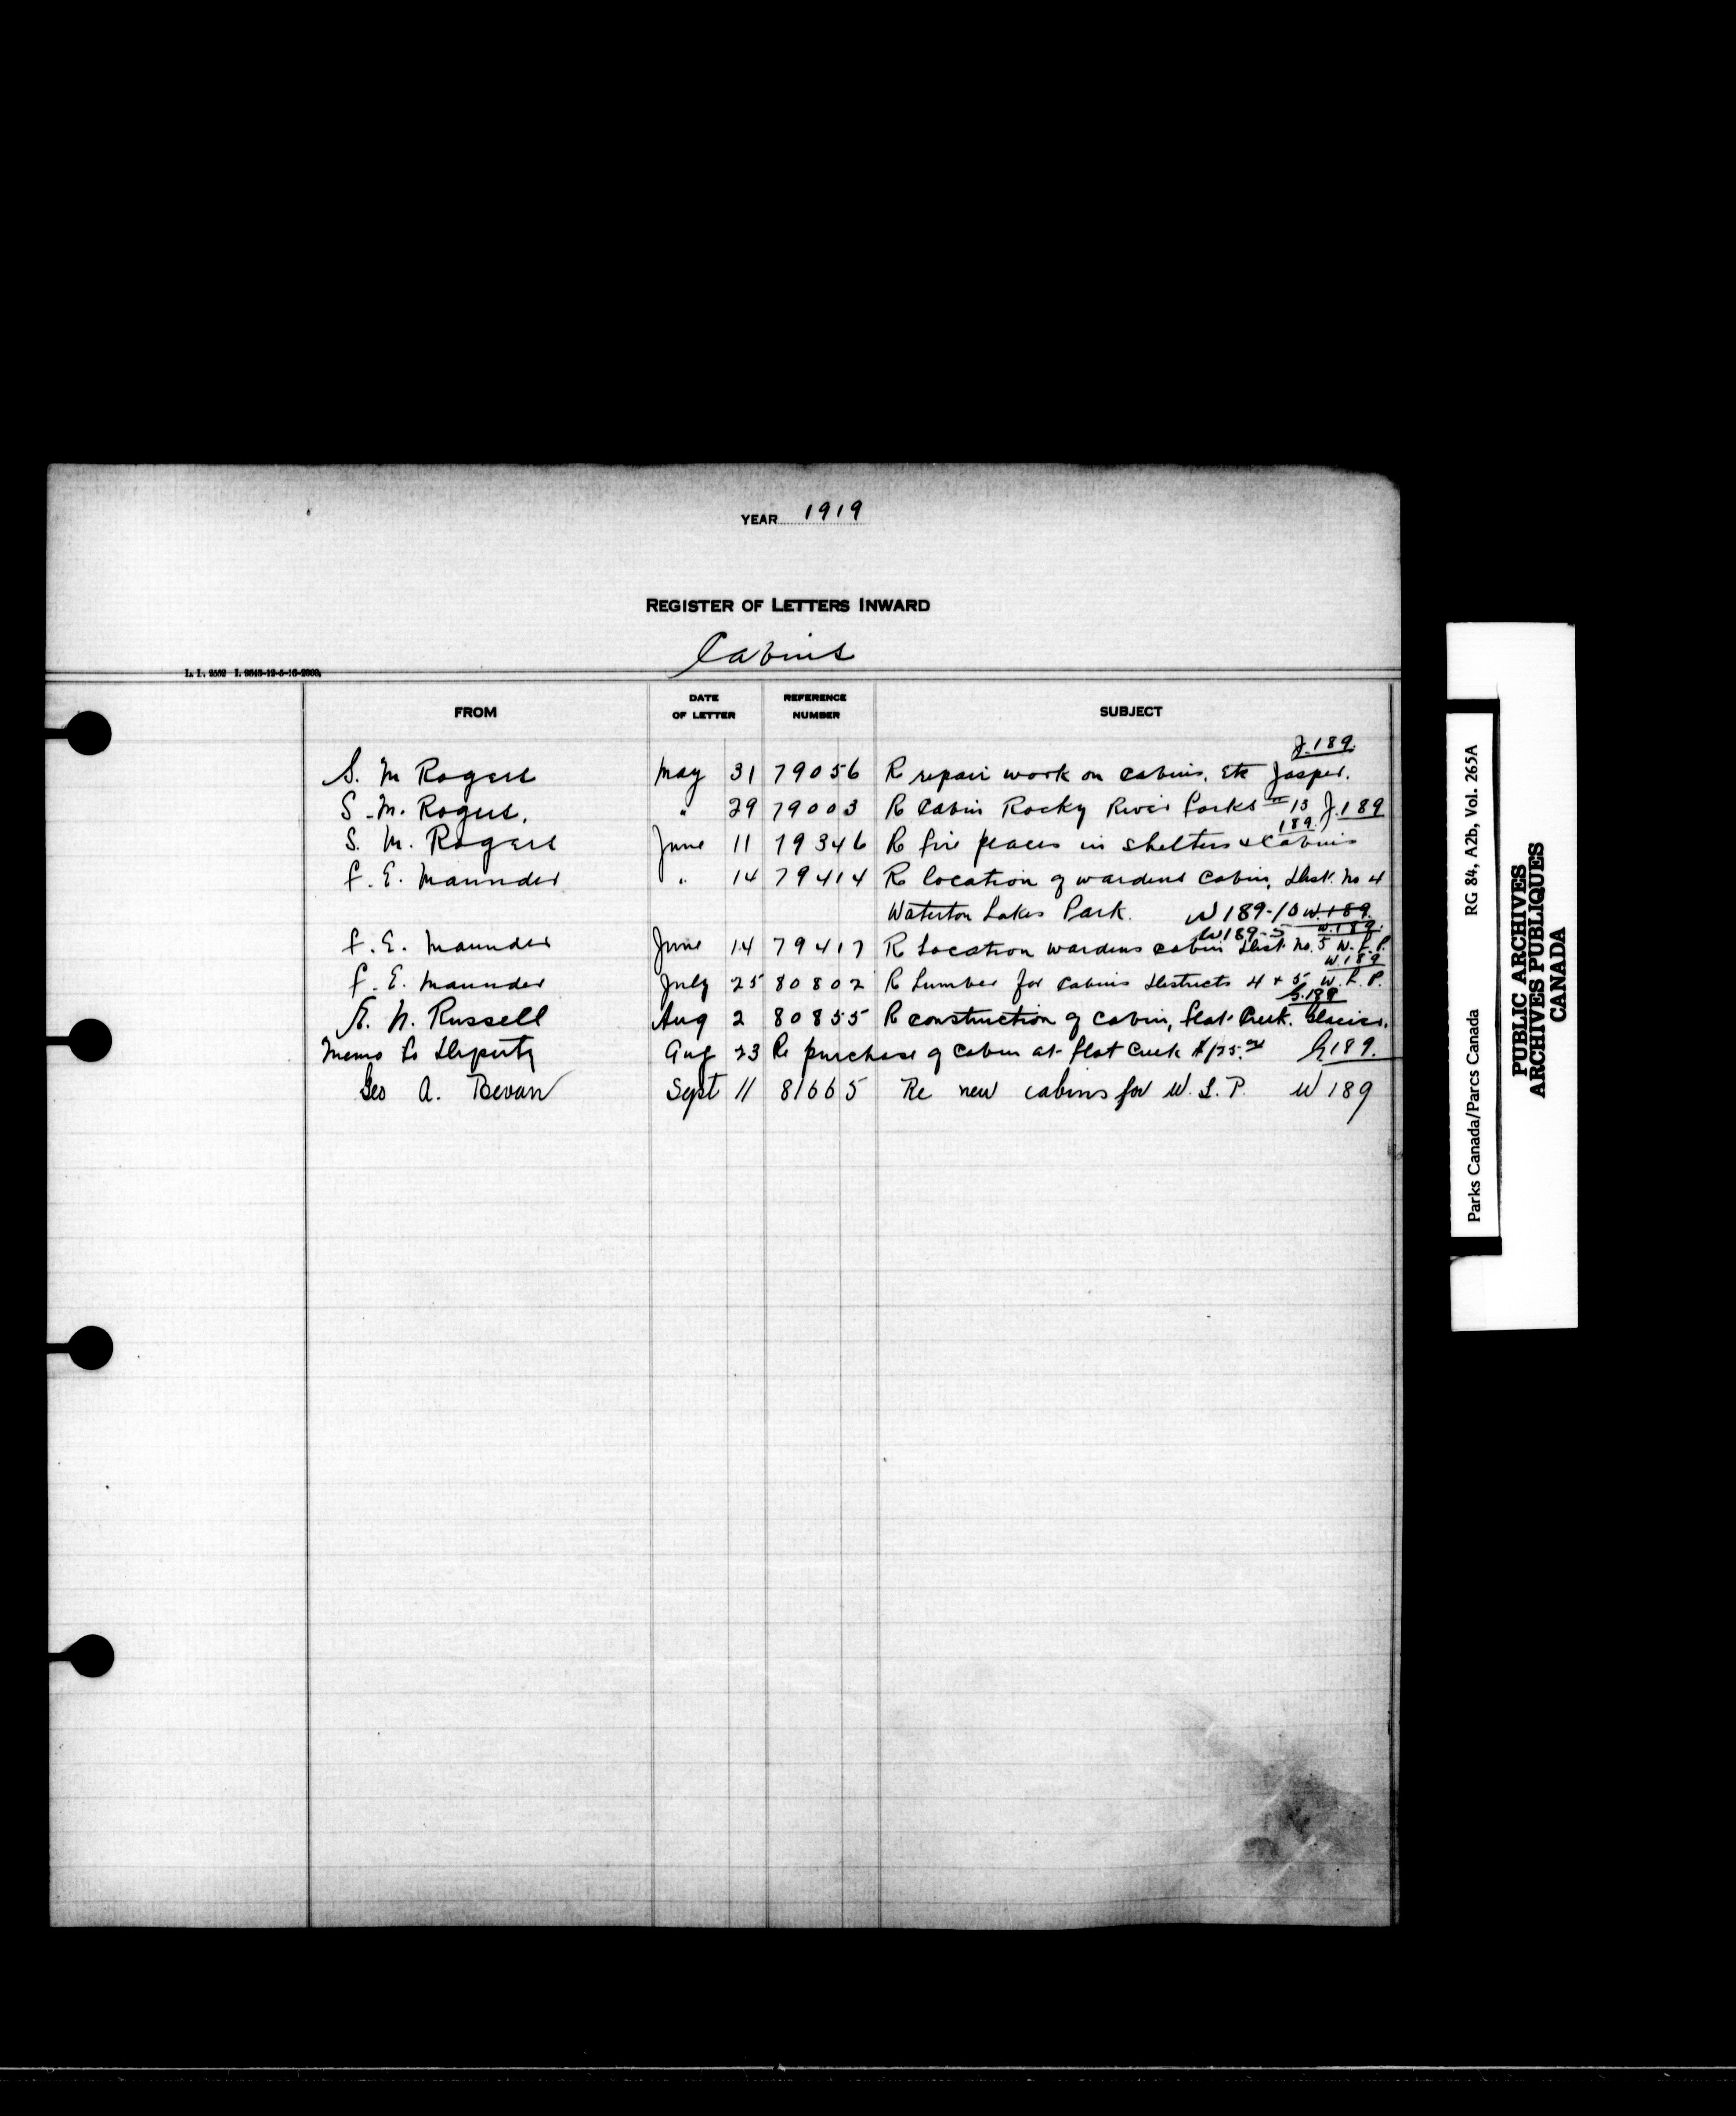 YEAR 1919
REGISTER OF LETTERS INWARD
Cabins
L. I. 2552
FROM DATE OF LETTER REFERENCE NUMBER SUBJECT
J.189.
S. M Rogers May 31 79056 R repair work on cabins, Etc Jasper.
S. M. Rogers. " 29 79003 R Cabin Rocky River Forks 13 J.189
189.
S. M. Rogers June 11 79346 R fire places in shelters & Cabins
F. E. Maunder " 14 79414 R location of wardens Cabin, Dist. No 4
Waterton Lakes Park. W189-10 W.189.
W189-5 W.189.
F. E. Maunder June 14 79417 R Location wardens cabin Dist. No. 5 W.L.P.
W.189
F. E. Maunder July 25 80802 R Lumber for Cabins Districts 4 + 5 W.L.P.
G.189
E. N. Russell Aug 2 80855 R construction of cabin, Flat Creek. Glacier.
Memo to Deputy Aug 23 Re purchase of cabin at Flat Creek $175. G189.
Geo A. Bevan Sept 11 81665 Re new cabins for W. L. P. W 189
Parks Canada/Parcs Canada RG 84, A2b, Vol. 265A
PUBLIC ARCHIVES
ARCHIVES PUBLIQUES
CANADA